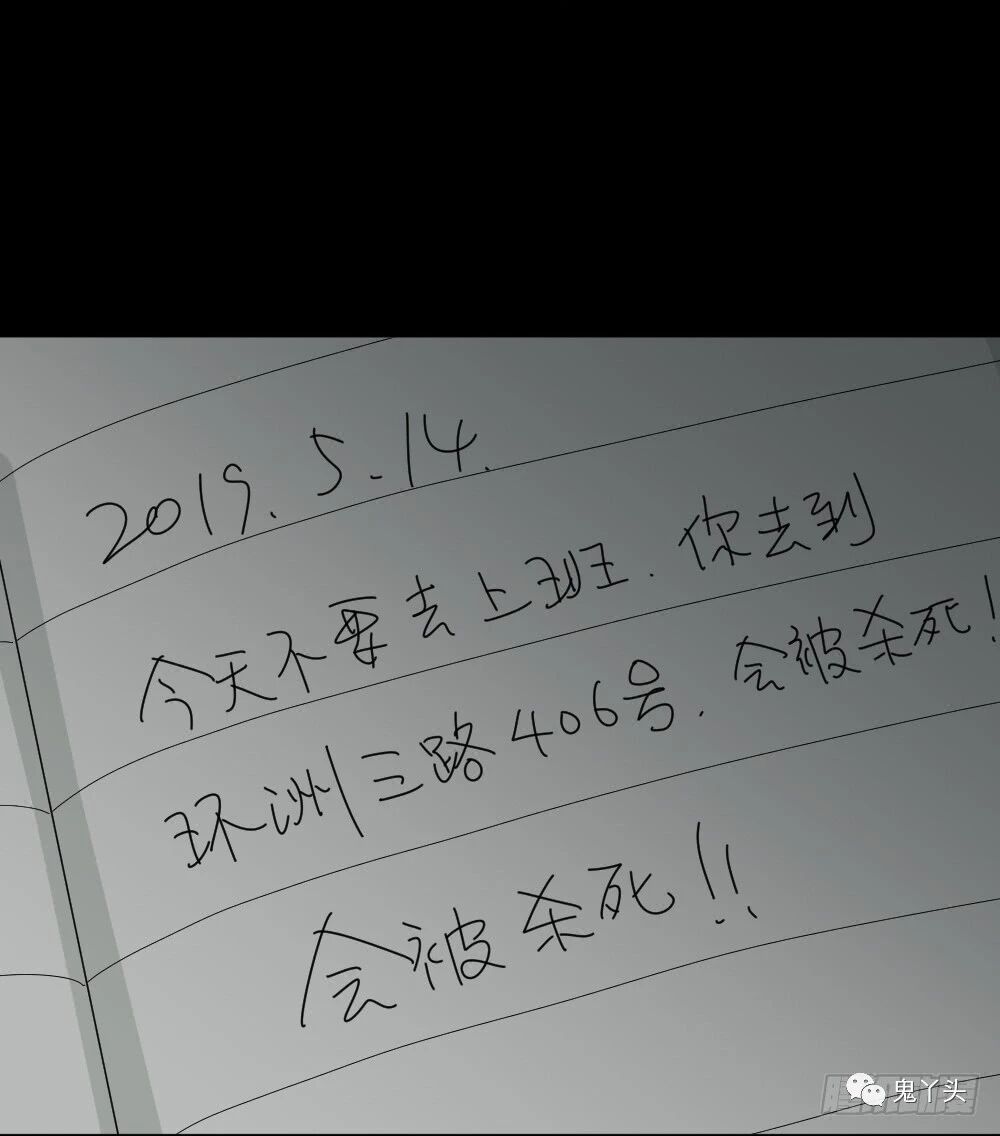 2019.5.14.
今天不要去上班.你去到
环洲三路406号.会被杀死！
会被杀死！！
鬼丫头